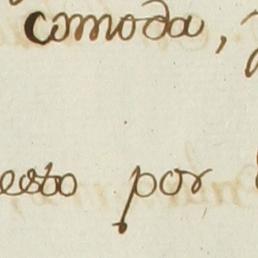 comoda,
esto por